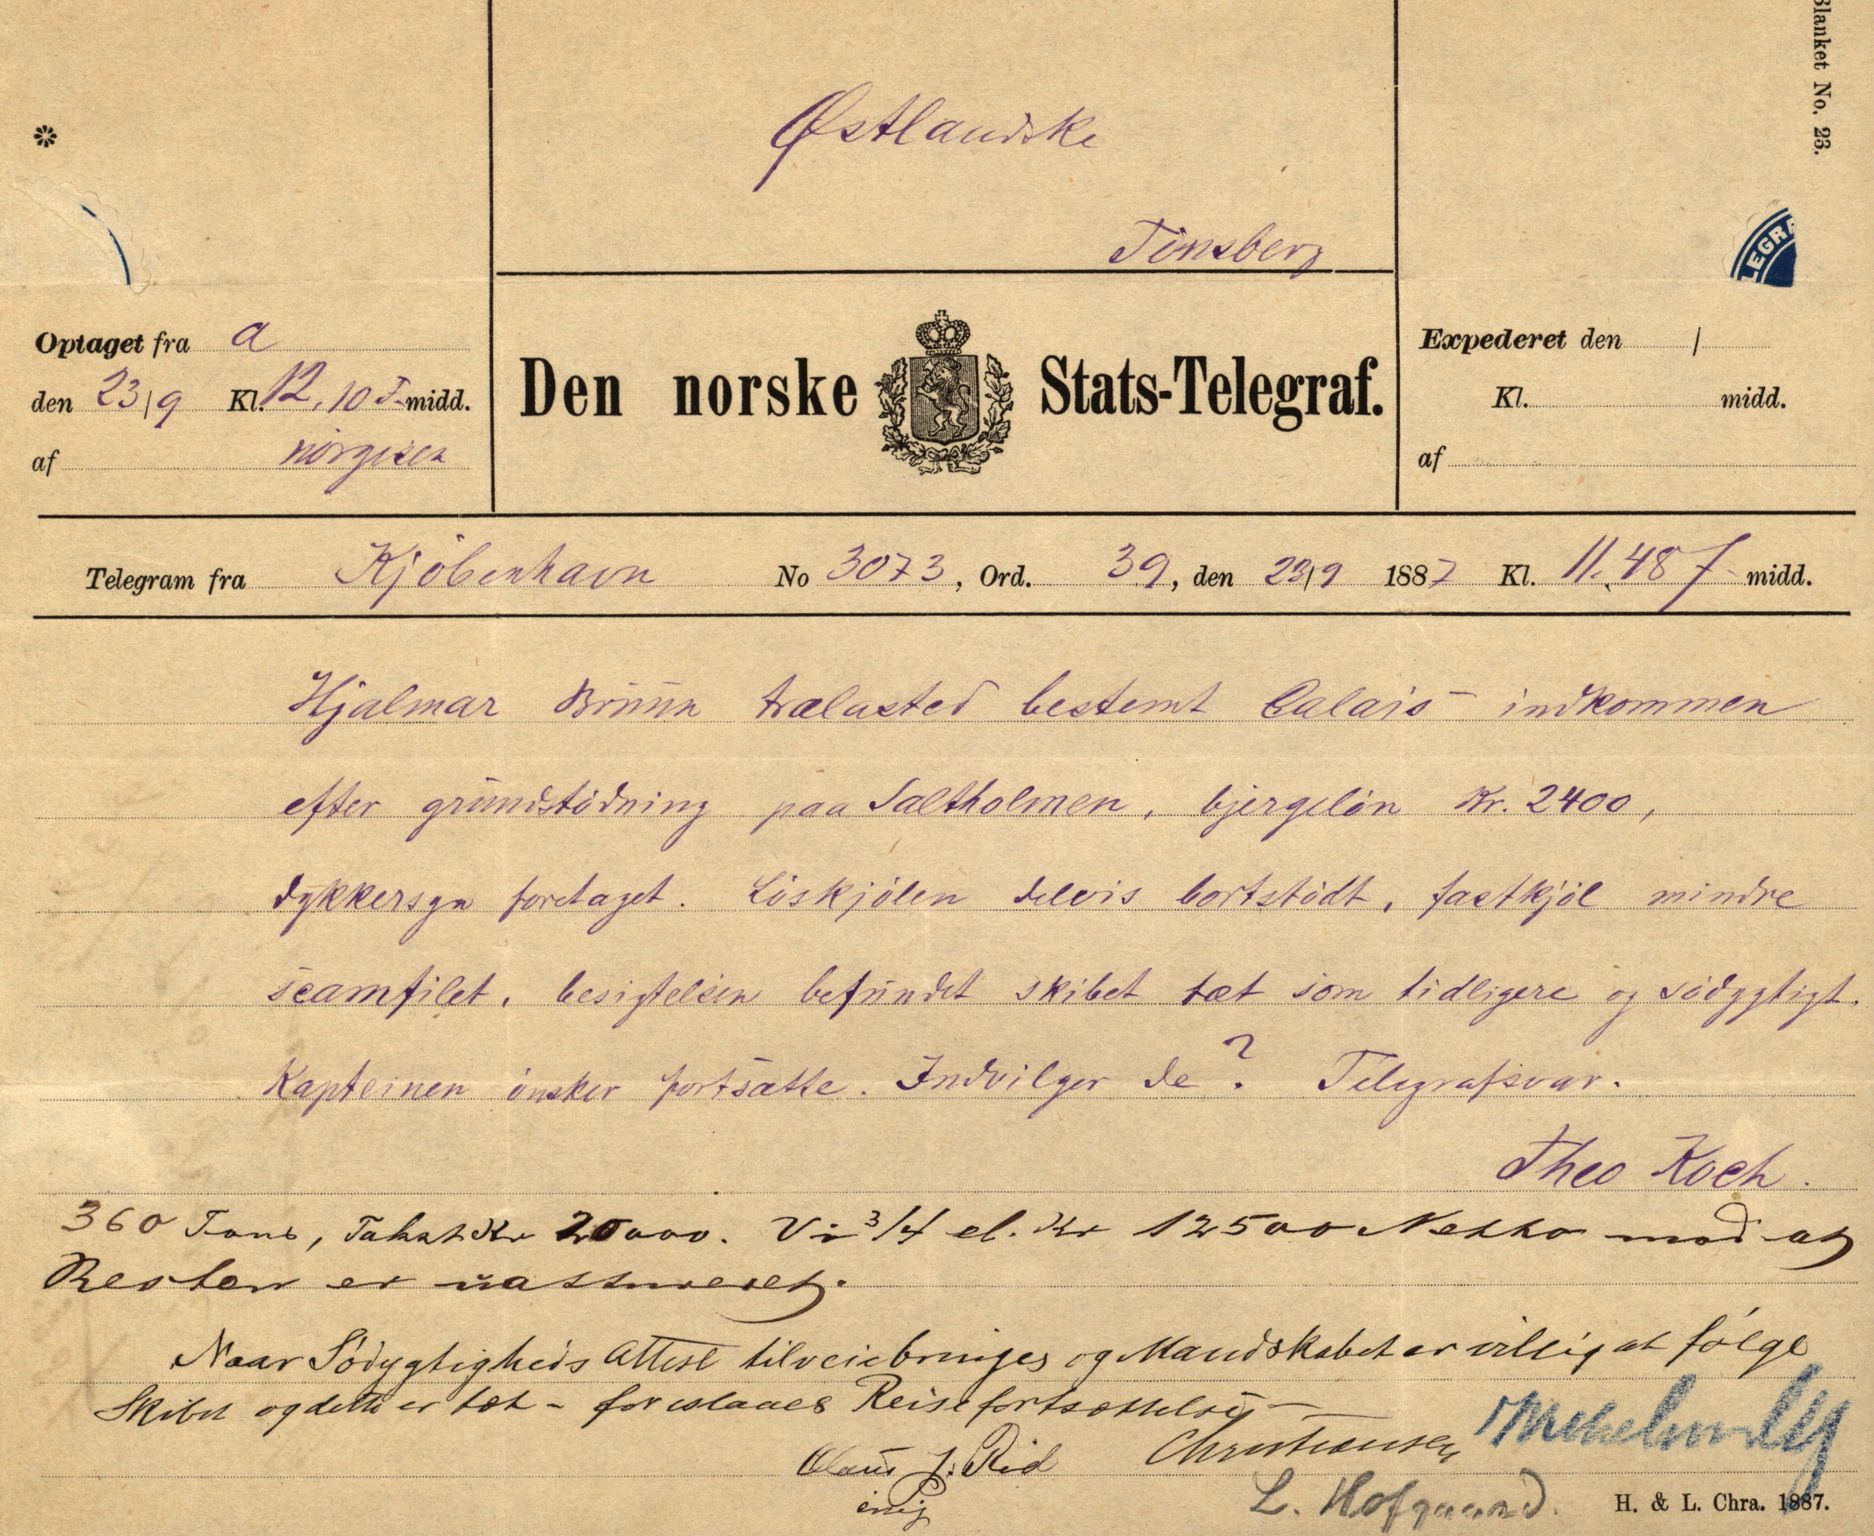 Blanket No. 23.
Østlandske
Tönsberg
LEGRA
Optaget fra a
den 23/9 Kl. 12,10 F-midd.
af Nörgisen
Den norske Stats-Telegraf.
Expederet den /
Kl. midd.
af
Telegram fra Kjöbenhavn No 3073, Ord. 39, den 23/9 1887 Kl. 11.48 f-midd.
Hjalmar Brüun trælasted bestemt Calais indkommen
efter grundstödning paa Saltholmen, bjergelön Kr. 2400,
dykkersyn foretaget. Löskjölen delvis bortstödt, fastkjöl mindre
scamfilet, besigtelsen befundet skibet tæt som tidligere og södygtigt.
Kapteinen önsker fortsætte. Indvilger de? Telegrafsvar.
Theo Koch.
360 Tons, Takst Kr 20000. Vi 3/4 el. Kr 12500 Netto mod at
Resten er uassureret.
Naar Södygtigheds Attest tilveiebringes og Mandskabet er villig at følge
Skibet og dette er tæt - foreslaaes Reisefortsættelse -
Claus J. Rid
Christiansen
enig
L. Hofgaard.
H. & L. Chra. 1887.